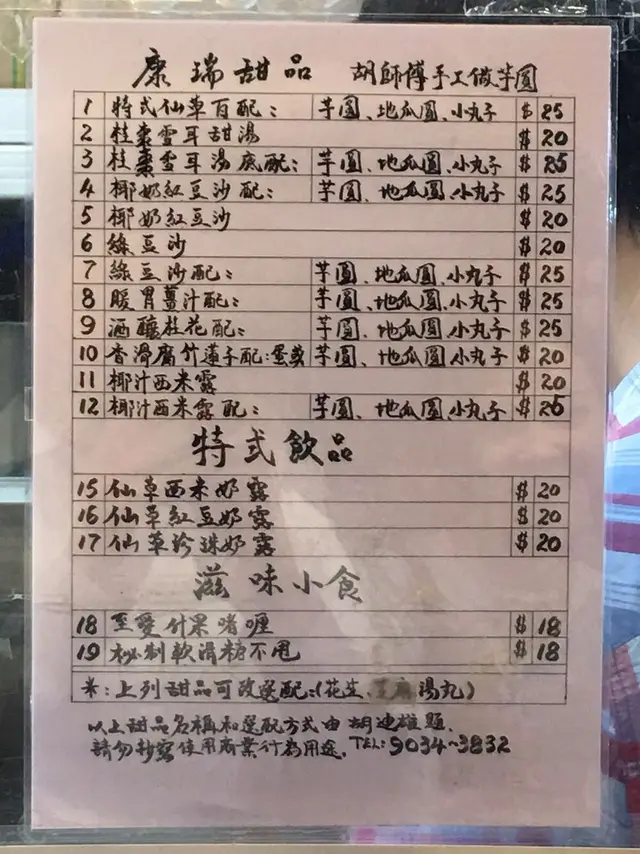 康瑞甜品 胡師傅手工做芋圓
1 特式仙草百配: 芋圓、地瓜圓、小丸子 $ 25
2 桂棗雪耳甜湯 $ 20
3 桂棗雪耳湯底配: 芋圓、地瓜圓、小丸子 $ 25
4 椰奶紅豆沙配: 芋圓、地瓜圓、小丸子 $ 25
5 椰奶紅豆沙 $ 20
6 綠豆沙 $ 20
7 綠豆沙配: 芋圓、地瓜圓、小丸子 $ 25
8 暖胃薑汁配: 芋圓、地瓜圓、小丸子 $ 25
9 酒釀桂花配: 芋圓、地瓜圓、小丸子 $ 25
10 香滑腐竹蓮子配:蛋或 芋圓、地瓜圓、小丸子 $ 20
11 椰汁西米露 $ 20
12 椰汁西米露配: 芋圓、地瓜圓、小丸子 $ 25
特式飲品
15 仙草西米奶露 $ 20
16 仙草紅豆奶露 $ 20
17 仙草珍珠奶露 $ 20
滋味小食
18 至愛什果啫喱 $ 18
19 秘制軟滑糖不甩 $ 18
*:上列甜品可改選配:(花生、芝麻湯丸)
以上甜品名稱和選配方式由胡迪雄題.
請勿抄寫使用商業行為用途. TEL:9034-3832